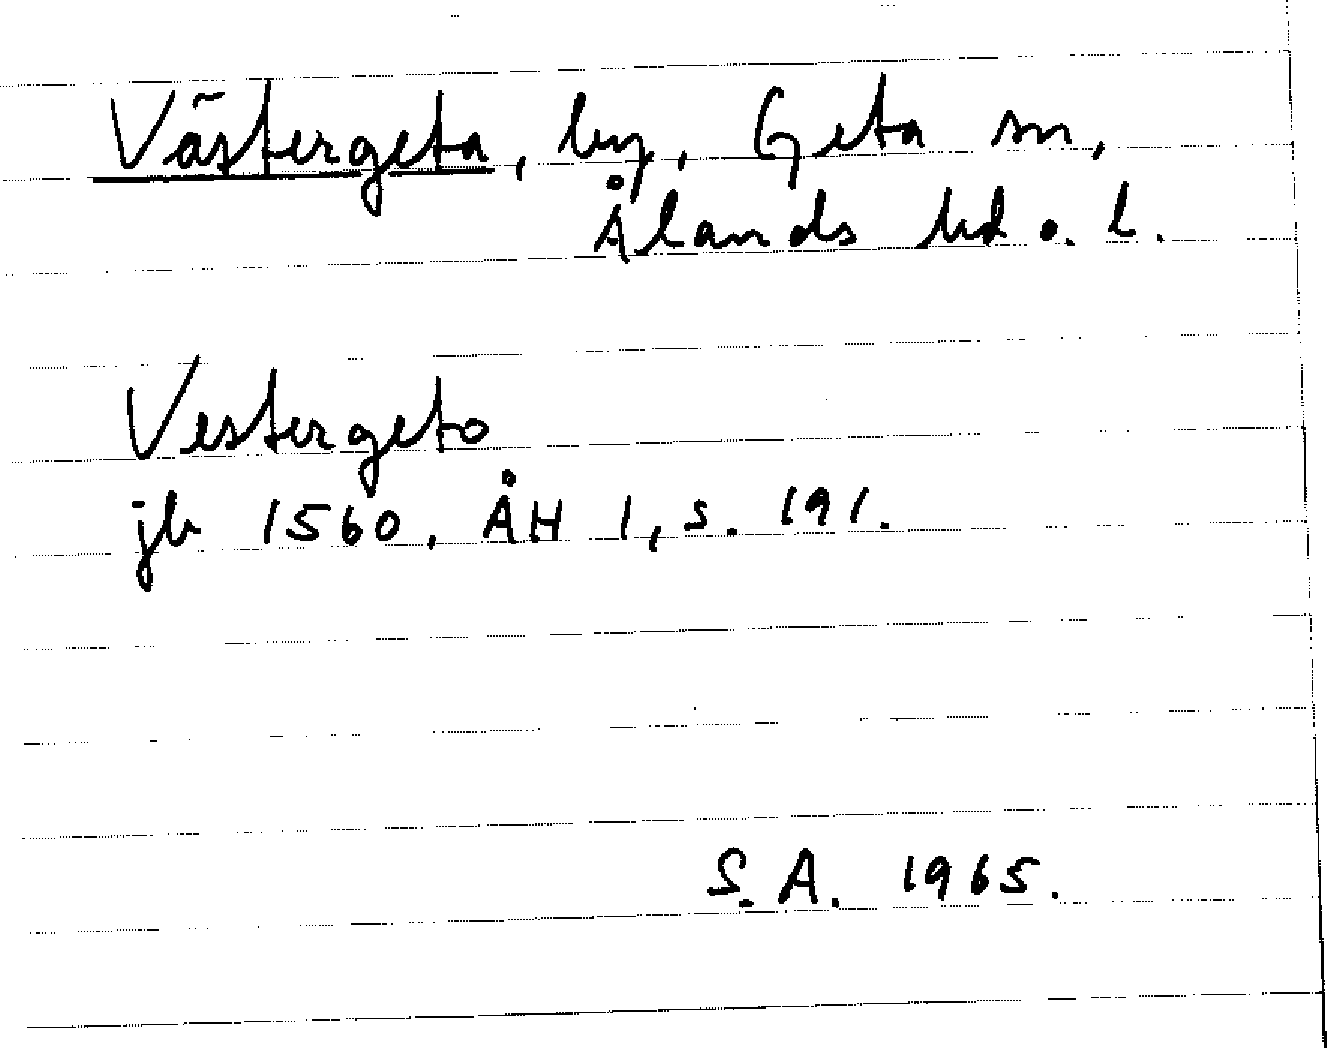 Västergeta, by, Geta sn,
Ålands hd o. l.
Vestergeto
jb 1560, ÅH 1, s. 191.
S. A. 1965.